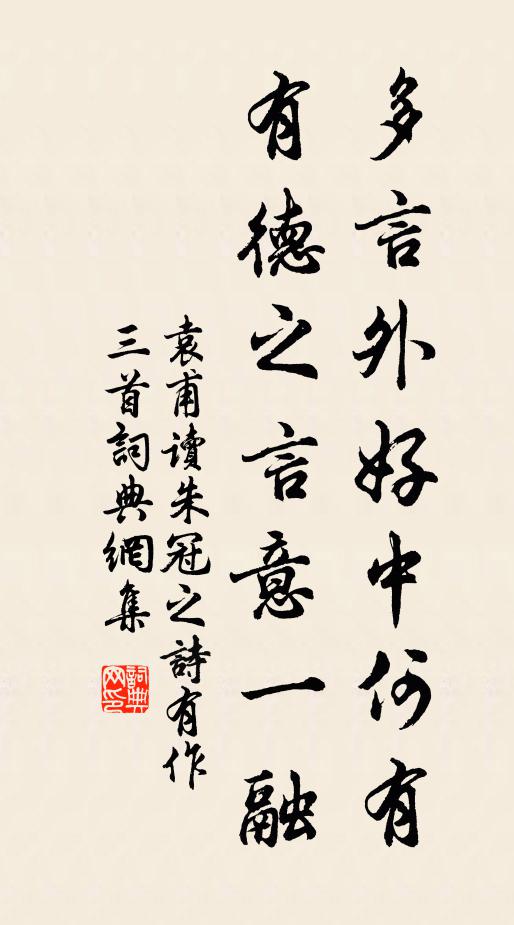 多言外好中何有
有德之言意一融
袁甫讀朱冠之詩有作
三首詞典網集
詞典网印